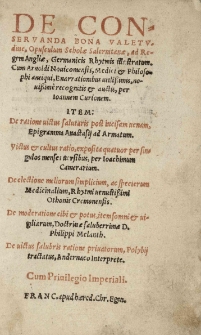 DE CON-
SERVANDA BONA VALETV-
dine, Opusculum Scholæ Salernitanæ, ad Re-
gem Angliæ, Germanicis Rhytmis illustratum.
Cum Arnoldi Nouicomensis, Medici & Philoso-
phi antiqui, Enarrationibus utilissimis, no-
uissime recognitis & auctis, per
Ioannem Curionem.
ITEM:
De ratione uictus salutaris post incisam uenam,
Epigramma Anastasij ad Armatum.
Victus & cultus ratio, exposita quatuor per sin-
gulos menses uersibus, per Ioachimum
Camerarium.
De electione meliorum simplicium, ac specierum
Medicinalium, Rhytmi uenustissimi
Othonis Cremonensis.
De moderatione cibi & potus, item somni & ui-
giliarum, Doctrinæ saluberrimæ D.
Philippi Melanth.
De uictus salubris ratione priuatorum, Polybij
tractatus, Andernaco Interprete.
Cum Priuilegio Imperiali.
FRANC. apud hæred. Chr. Egen.